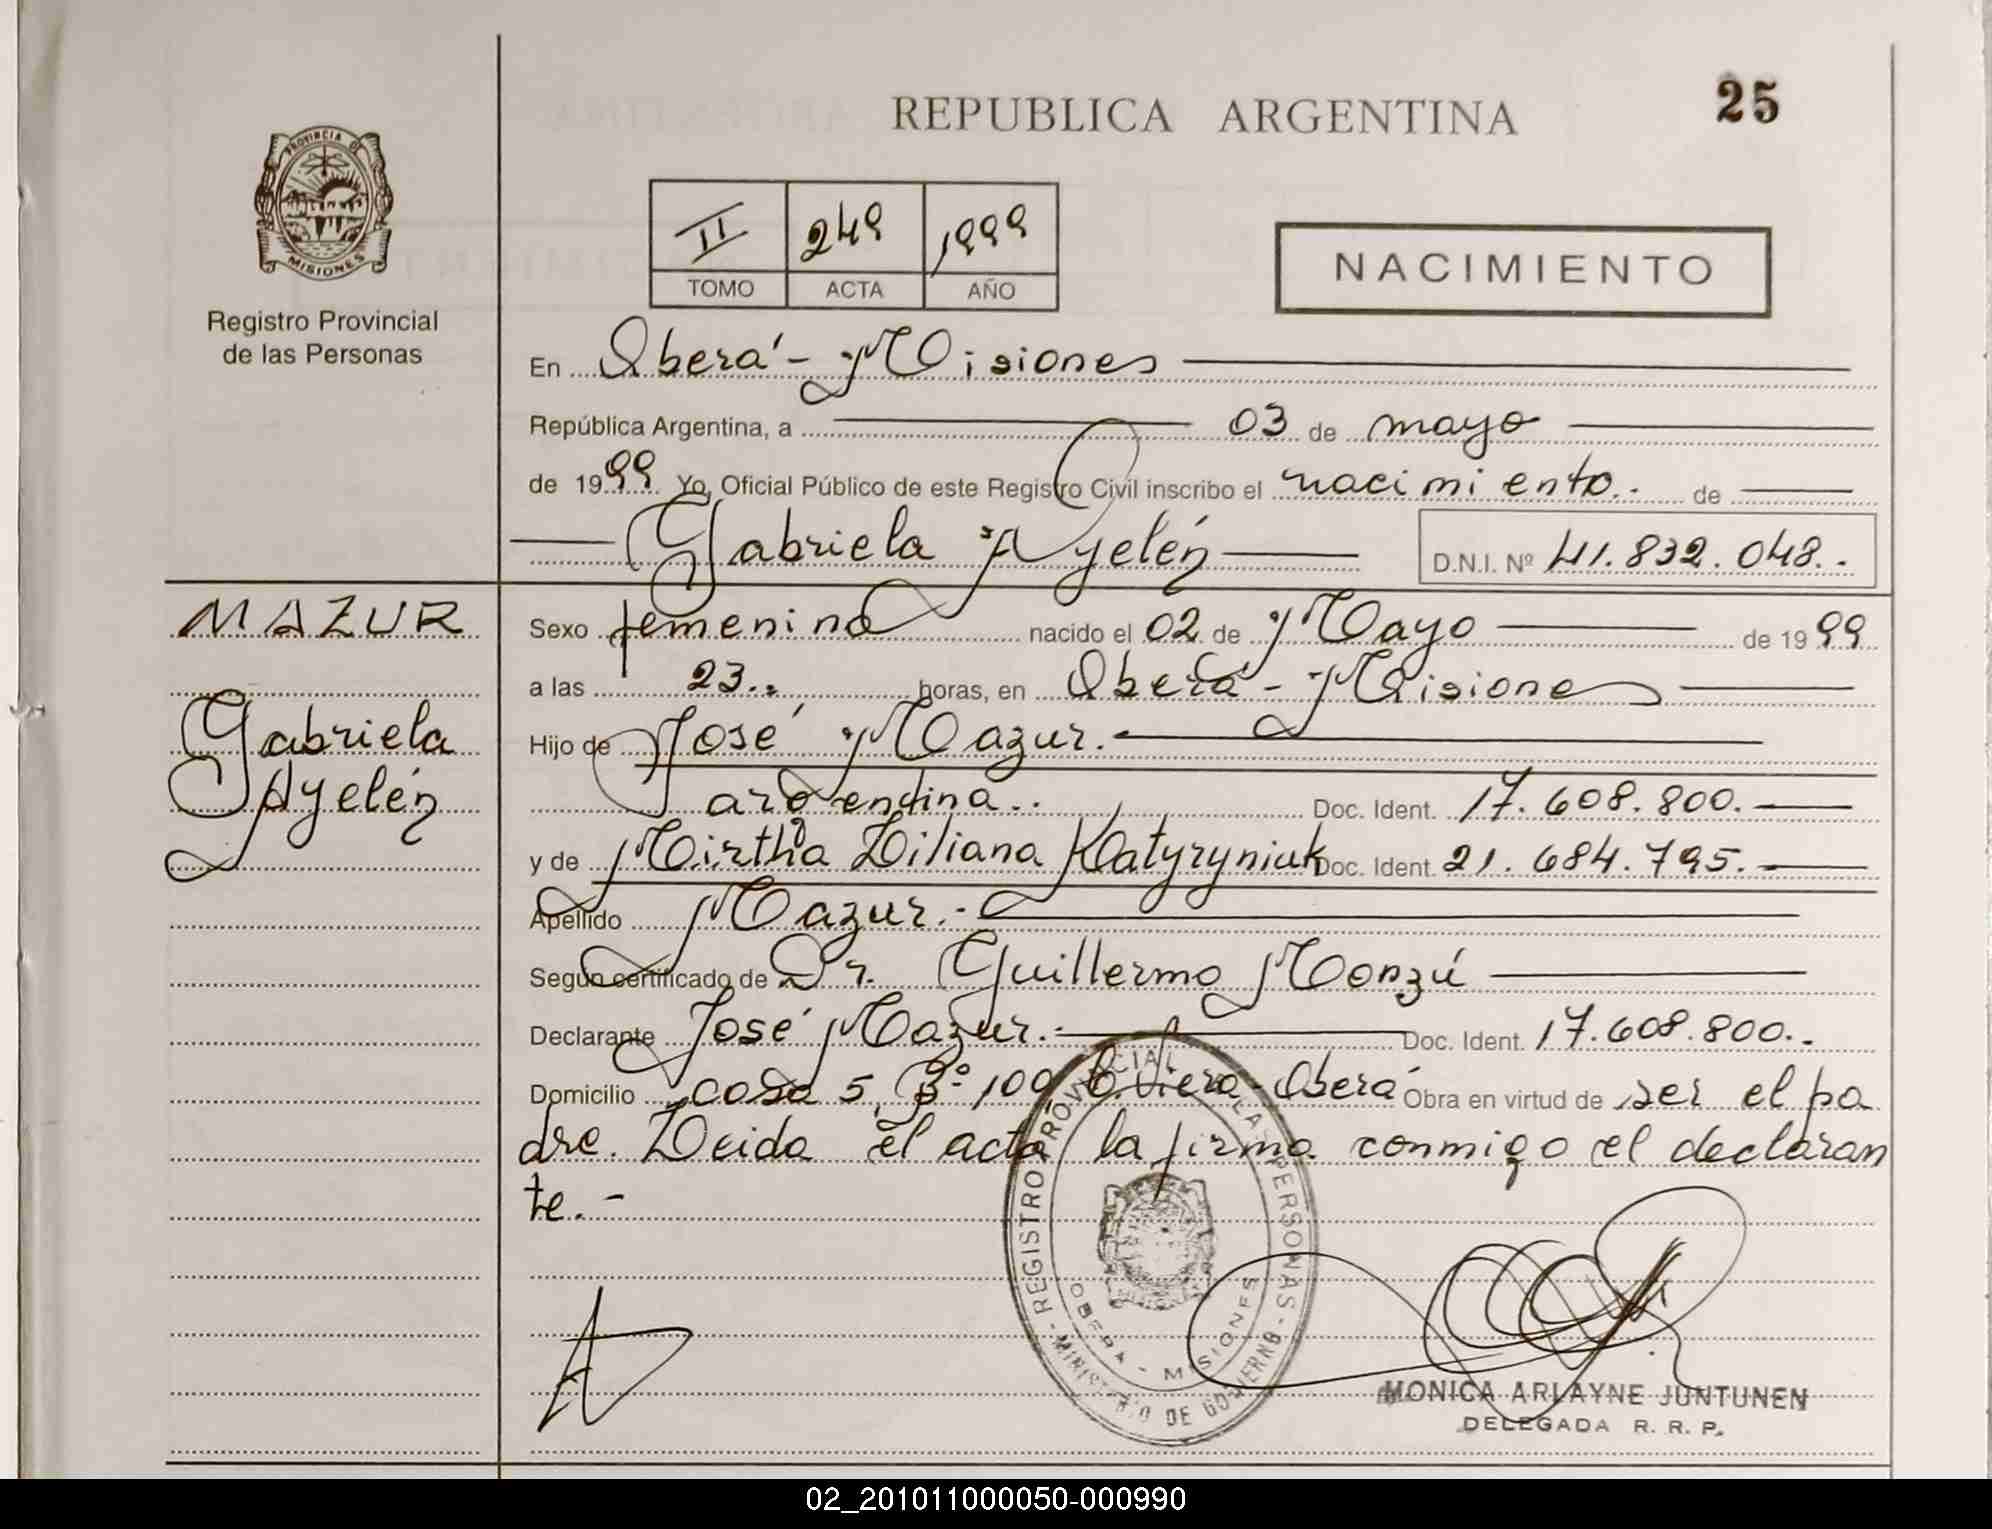 25
REPUBLICA ARGENTINA
PROVINCIA DE
MISIONES
Registro Provincial
de las Personas
II 249 1999
TOMO ACTA AÑO
NACIMIENTO
En Oberá - Misiones
República Argentina, a 03 de mayo
de 1999 Yo, Oficial Público de este Registro Civil inscribo el nacimiento.. de
Gabriela Ayelén D.N.I. Nº 41.832.048..
MAZUR
Gabriela
Ayelén
Sexo femenino nacido el 02 de Mayo de 1999
a las 23.. horas, en Oberá - Misiones
Hijo de José Mazur.
argentina.. Doc. Ident. 17.608.800.
y de Mirtha Liliana Katyryniuk Doc. Ident. 21.684.795.
Apellido Mazur.-
Según certificado de Dr. Guillermo Monzú
Declarante José Mazur. Doc. Ident. 17.608.800..
Domicilio casa 5, Bº 100 Oberá Obra en virtud de ser el pa
dre. Leida el acta la firma conmigo el declaran
te.-
REGISTRO PROVINCIAL DE LAS PERSONAS - MINISTERIO DE GOBIERNO -
OBERA - MISIONES
MONICA ARLAYNE JUNTUNEN
DELEGADA R. R. P.
02_201011000050-000990